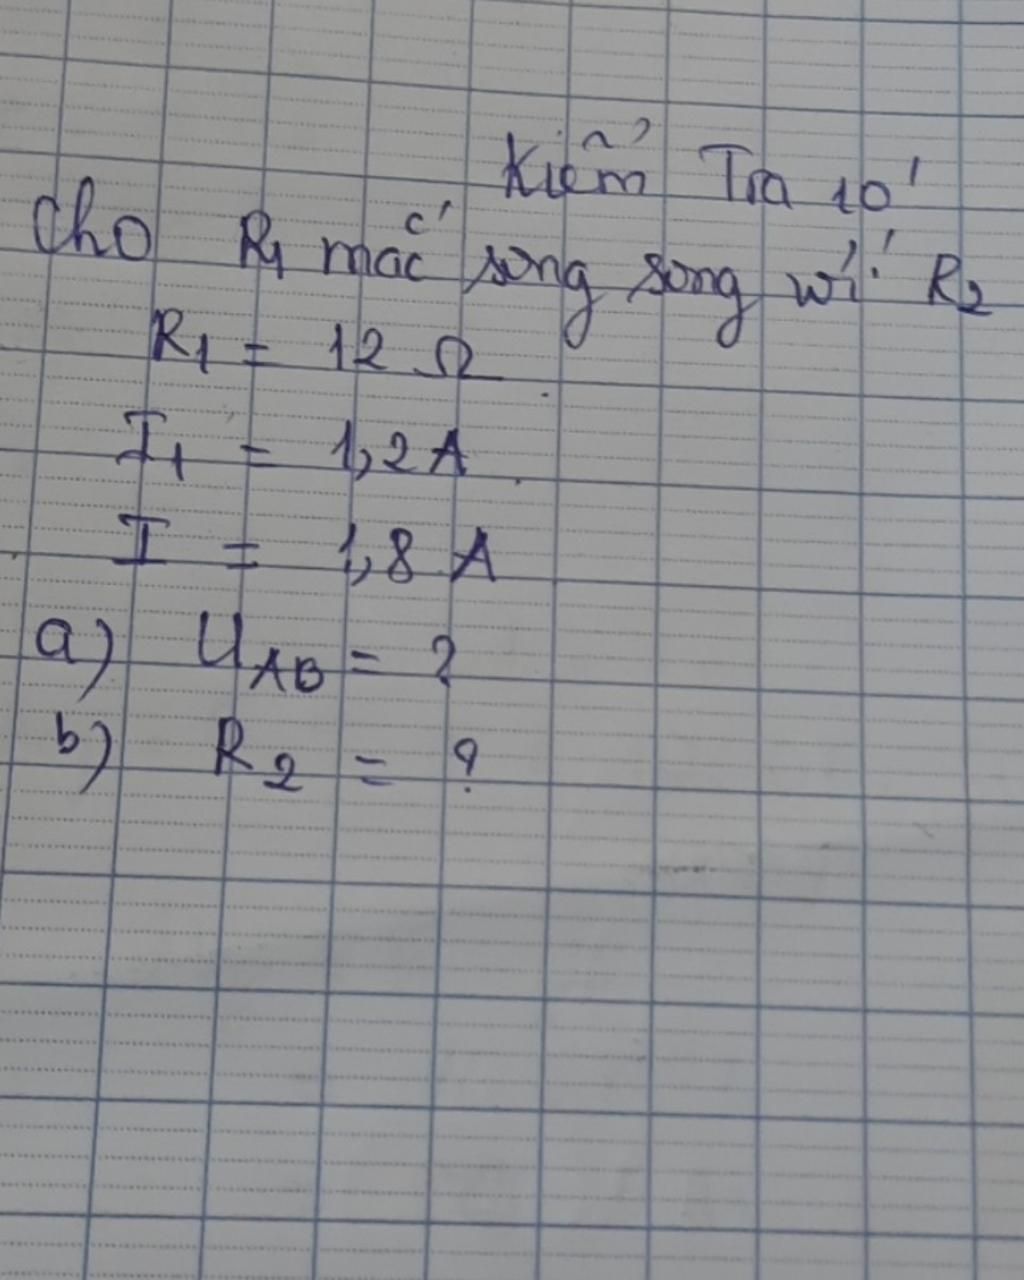 Kiểm Tra 10'
Cho R1 mắc song song với R2
R1 = 12 Ω
I1 = 1,2 A
I = 1,8 A
a) UAB = ?
b) R2 = ?